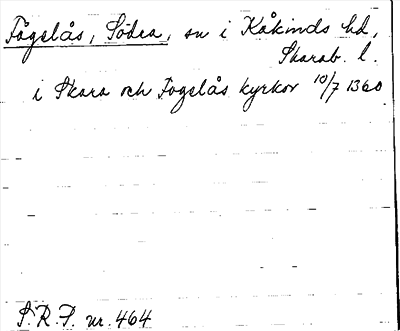 Fågelås, Södra, sn i Kåkinds hd,
Skarab. l.
i Skara och Fogelås kyrkor 10/7 1360
S.R.P. nr. 464